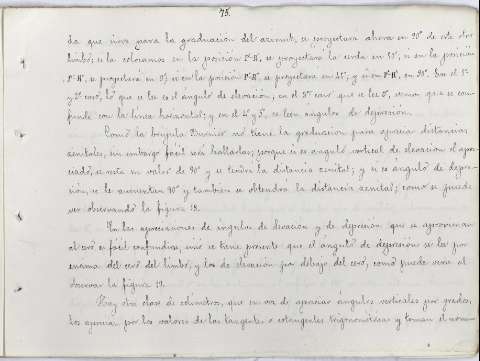 75.
da que sirve para la graduacion del azimut, se proyectara ahora en 90° de este otro
limbo; si la colocamos en la posición se proyectara la cerda en 45°; si en la posición
se proyectara en 0°; si en la posición se proyectara en 45°; y si en en 90°. En el 1er
y 2° caso, lo que se lee es el ángulo de elevación, en el 3er caso que se lee 0°, vemos que se con-
funde con la linea horizontal; y en el 4° y 5°, se leen ángulos de depresión.
Como la brujula Burnier no tiene la graduación para apreciar distancias
zenitales, sin embargo facil será hallarlas; porque si es ángulo vertical de elevación el apre-
ciado, se resta su valor de 90° y se tendrá la distancia zenital; y si es ángulo de depre-
sión, se le aumentan 90° y tambien se obtendra la distancia zenital; como se puede
ver observando la figura 18.
En las apreciaciones de ángulos de elevación y de depresión que se aproximan
al cero es fácil confundirse, sino se tiene presente que el ángulo de depresión se lee por
encima del cero del limbo, y los de elevación por debajo del cero, como puede verse al
observar la figura 19.
Hay otra clase de eclimetros, que en vez de apreciar ángulos verticales por grados,
los aprecia por los valores de las tangentes o cotangentes trigonométricas y toman el nom-